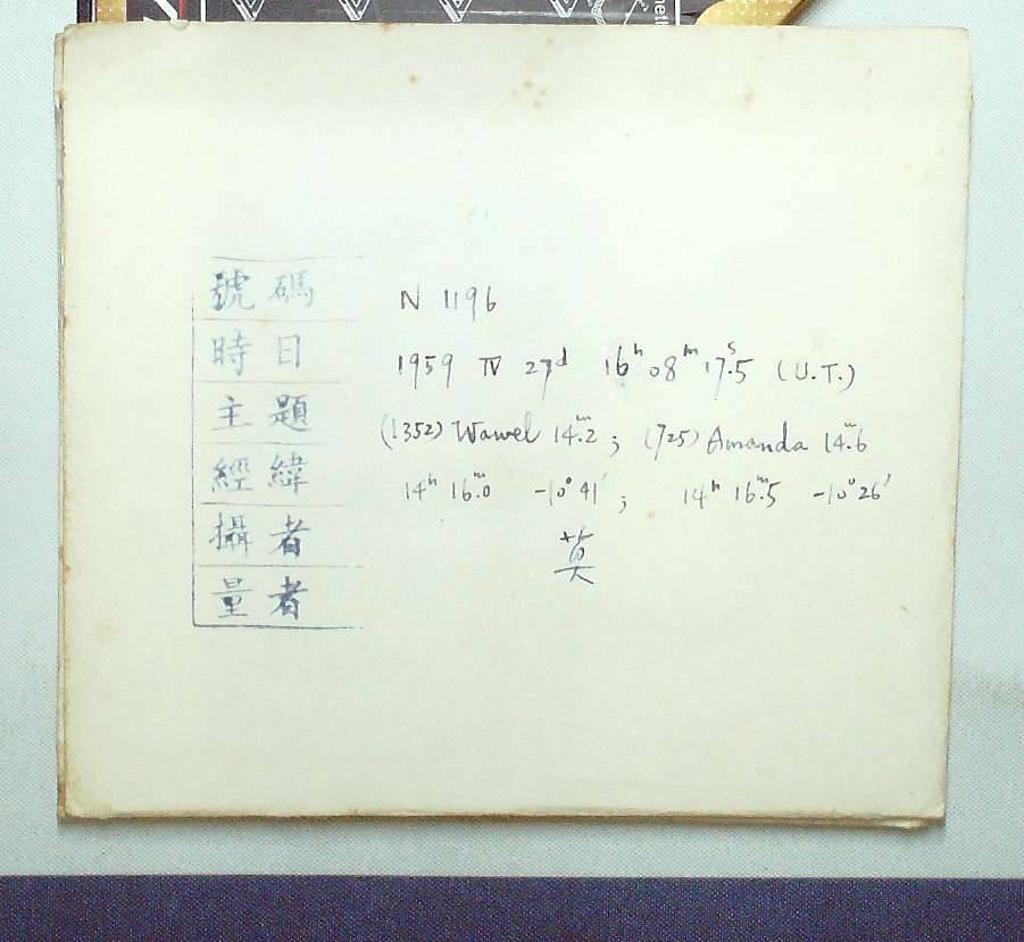 號碼 N 1196
時日 1959 IV 27ᵈ 16ʰ 08ᵐ 17ˢ.5 (U.T.)
主題 (1352) Wawel 14ᵐ.2 ; (725) Amanda 14ᵐ.6
經緯 14ʰ 16ᵐ.0 -10°41′ ; 14ʰ 16ᵐ.5 -10°26′
攝者 莫
量者